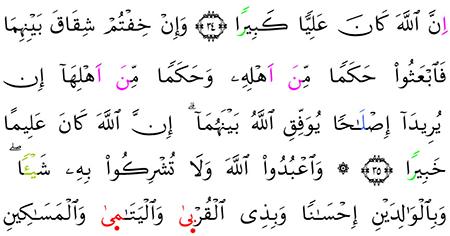 اِنَّ اللَّهَ كَانَ عَلِيًّا كَبِيرًا ۝٣٤ وَإِنْ خِفْتُمْ شِقَاقَ بَيْنِهِمَا
فَابْعَثُوا۟ حَكَمًا مِّنَ اَهْلِهِۦ وَحَكَمًا مِّنَ اَهْلِهَآ إِن
يُرِيدَآ إِصْلَٰحًا يُوَفِّقِ اللَّهُ بَيْنَهُمَآ ۗ إِنَّ اللَّهَ كَانَ عَلِيمًا
خَبِيرًا ۝٣٥ ۞ وَاعْبُدُوا۟ اللَّهَ وَلَا تُشْرِكُوا۟ بِهِۦ شَيْـًٔا ۖ
وَبِالْوَٰلِدَيْنِ إِحْسَٰنًا وَبِذِى الْقُرْبىٰ وَالْيَتَٰمىٰ وَالْمَسَٰكِينِ